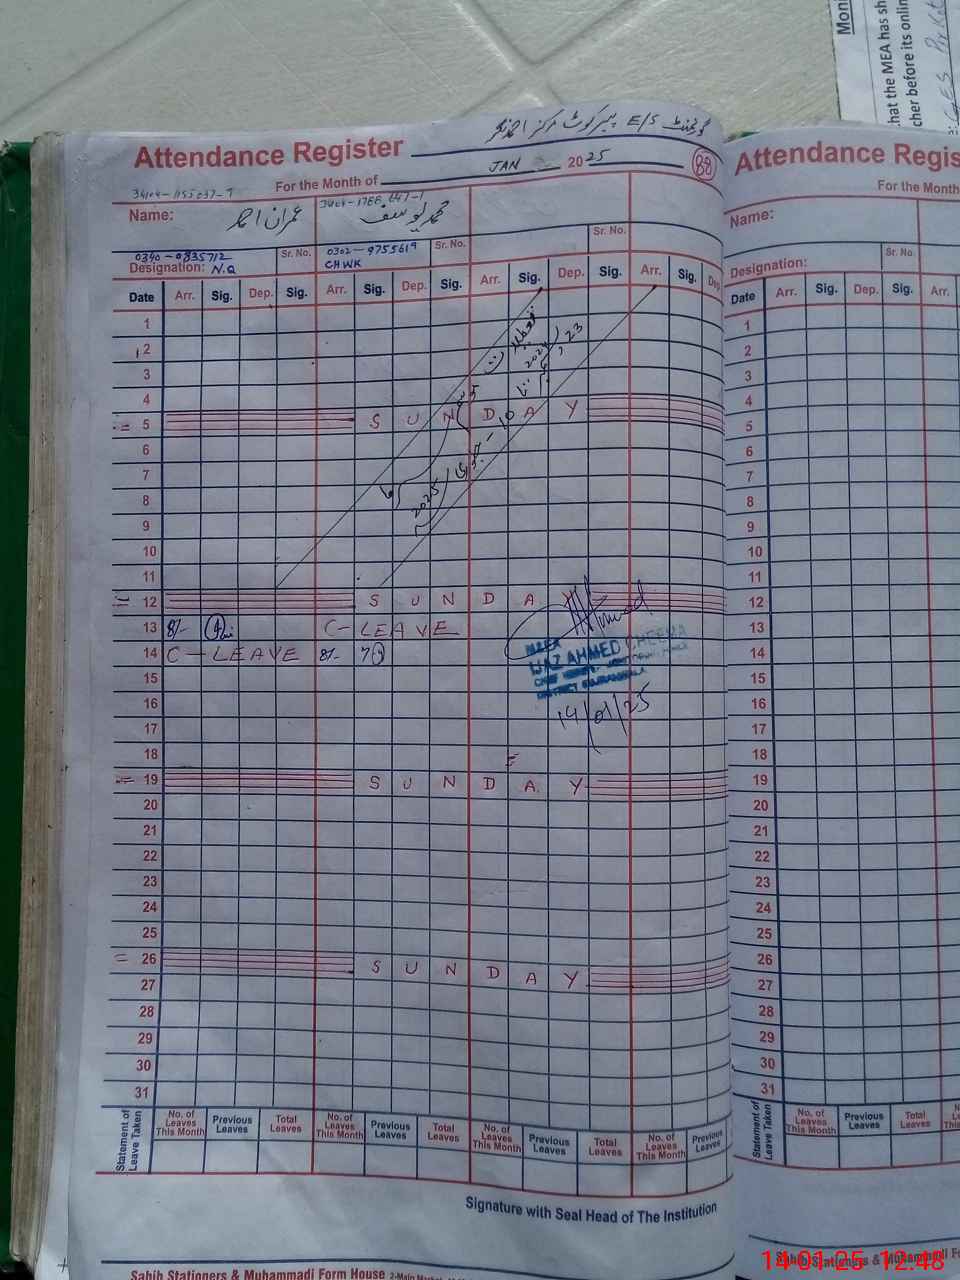 گورنمنٹ E/S پیرکوٹ مرکز احمد نگر
Attendance Register
JAN 2025
88
For the Month of
Name: عمران احمد
محمد یوسف
0340-0835712 Sr. No. 0302-9755619 Sr. No. Sr. No.
Designation: N.Q CHWK
Date Arr. Sig. Dep. Sig. Arr. Sig. Dep. Sig. Arr. Sig. Dep. Sig. Arr. Sig. Dep
1
2
3
4
5 SUNDAY
6
7
8
9
10
11
12 SUNDAY
13 8/- C-LEAVE
14 C-LEAVE 8/-
15
16
17
18
19 SUNDAY
20
21
22
23
24
25
26 SUNDAY
27
28
29
30
31
تعطیلات
2024
23
10 جنوری
2025
IJAZ AHMED CHEEMA
14/01/25
Statement of Leave Taken
No. of Leaves This Month Previous Leaves Total Leaves No. of Leaves This Month Previous Leaves Total Leaves No. of Leaves This Month Previous Leaves Total Leaves No. of Leaves This Month Previous Leaves
Signature with Seal Head of The Institution
Sahib Stationers & Muhammadi Form House
Attendance Regis
For the Month
Name:
Designation: Sr. No.
Date Arr. Sig. Dep. Sig. Arr.
1
2
3
4
5
6
7
8
9
10
11
12
13
14
15
16
17
18
19
20
21
22
23
24
25
26
27
28
29
30
31
Statement of Leave Taken
No. of Leaves This Month Previous Leaves Total Leaves
Sahib Stationers & Muhammadi Fo
Moni
hat the MEA has sh
cher before its onlin
14-01-25 12:48